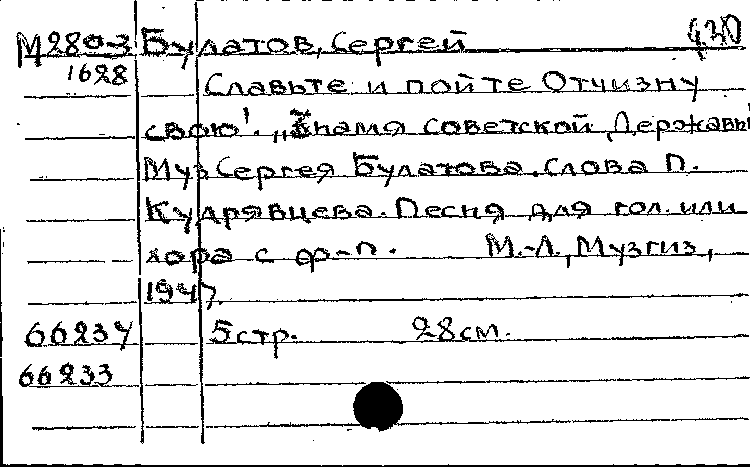 М2803 Булатов, Сергей 430
1628 Славьте и пойте Отчизну
свою! „Знамя советской Державы
Муз Сергея Булатова. Слова П.
Кудрявцева. Песня для гол. или
хора с ф-п. М.-Л., Музгиз,
1947.
66234 5 стр. 28 см.
66233